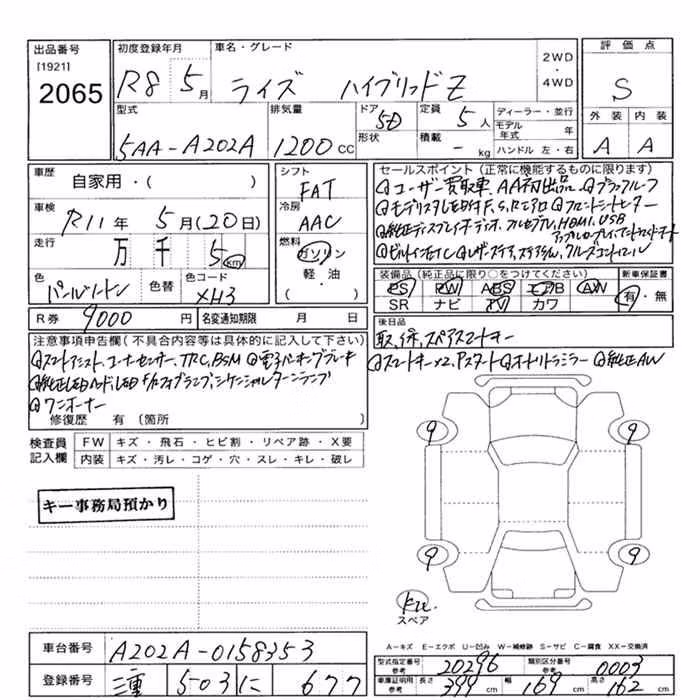 出品番号
[1921]
2065
初度登録年月
R8 5月
車名・グレード
ライズ ハイブリッドZ
2WD
・
4WD
評価点
S
外装 内装
A A
型式
5AA-A202A
排気量
1200cc
ドア
5D
形状
定員
5人
積載
- kg
ディーラー・並行
モデル年式 年
ハンドル 左・右
車歴
自家用・( )
車検
R11年 5月(20日)
走行
万 千 5km
色
パールツートン
色替
色コード
XH3
シフト
FAT
冷房
AAC
燃料
ガソリン
軽・油
・( )
セールスポイント(正常に機能するものに限ります)
ユーザー買取車、AA初出品 ブラックルーフ
モデリスタLED付F,S,Rエアロ フロントシートヒーター
純正ディスプレイオーディオ、フルセグTV、HDMI、USB
アップルカープレイ、アンドロイドオート
ビルトインETC レザーステア、ステアSW、クルーズコントロール
装備品(純正品に限り○をつけてください)
PS PW ABS エアB AW
SR ナビ TV カワ
新車保証書
有・無
R券 9000円
名変通知期限 月 日
後日品
取、保、スペアスマートキー
注意事項申告欄(不具合内容等は具体的に記入して下さい)
スマートアシスト、コーナーセンサー、TRC,BSM 電子パーキングブレーキ
純正LEDヘッド、LEDフォグランプ、シーケンシャルターンランプ
ワンオーナー
修復歴 有(箇所
スマートキー×2、Pスタート オートリトラミラー 純正AW
検査員記入欄
FW キズ・飛石・ヒビ割・リペア跡・X要
内装 キズ・汚レ・コゲ・穴・スレ・キレ・破レ
キー事務局預かり
9 9
9 9
スペア
A=キズ E=エクボ U=凹み W=補修跡 S=サビ C=腐食 XX=交換済
車台番号 A202A-0158353
登録番号 三重 503 に 677
型式指定番号 参考 20296
類別区分番号 参考 0003
車庫証明用 参考 長さ 399cm 幅 169cm 高さ 162cm